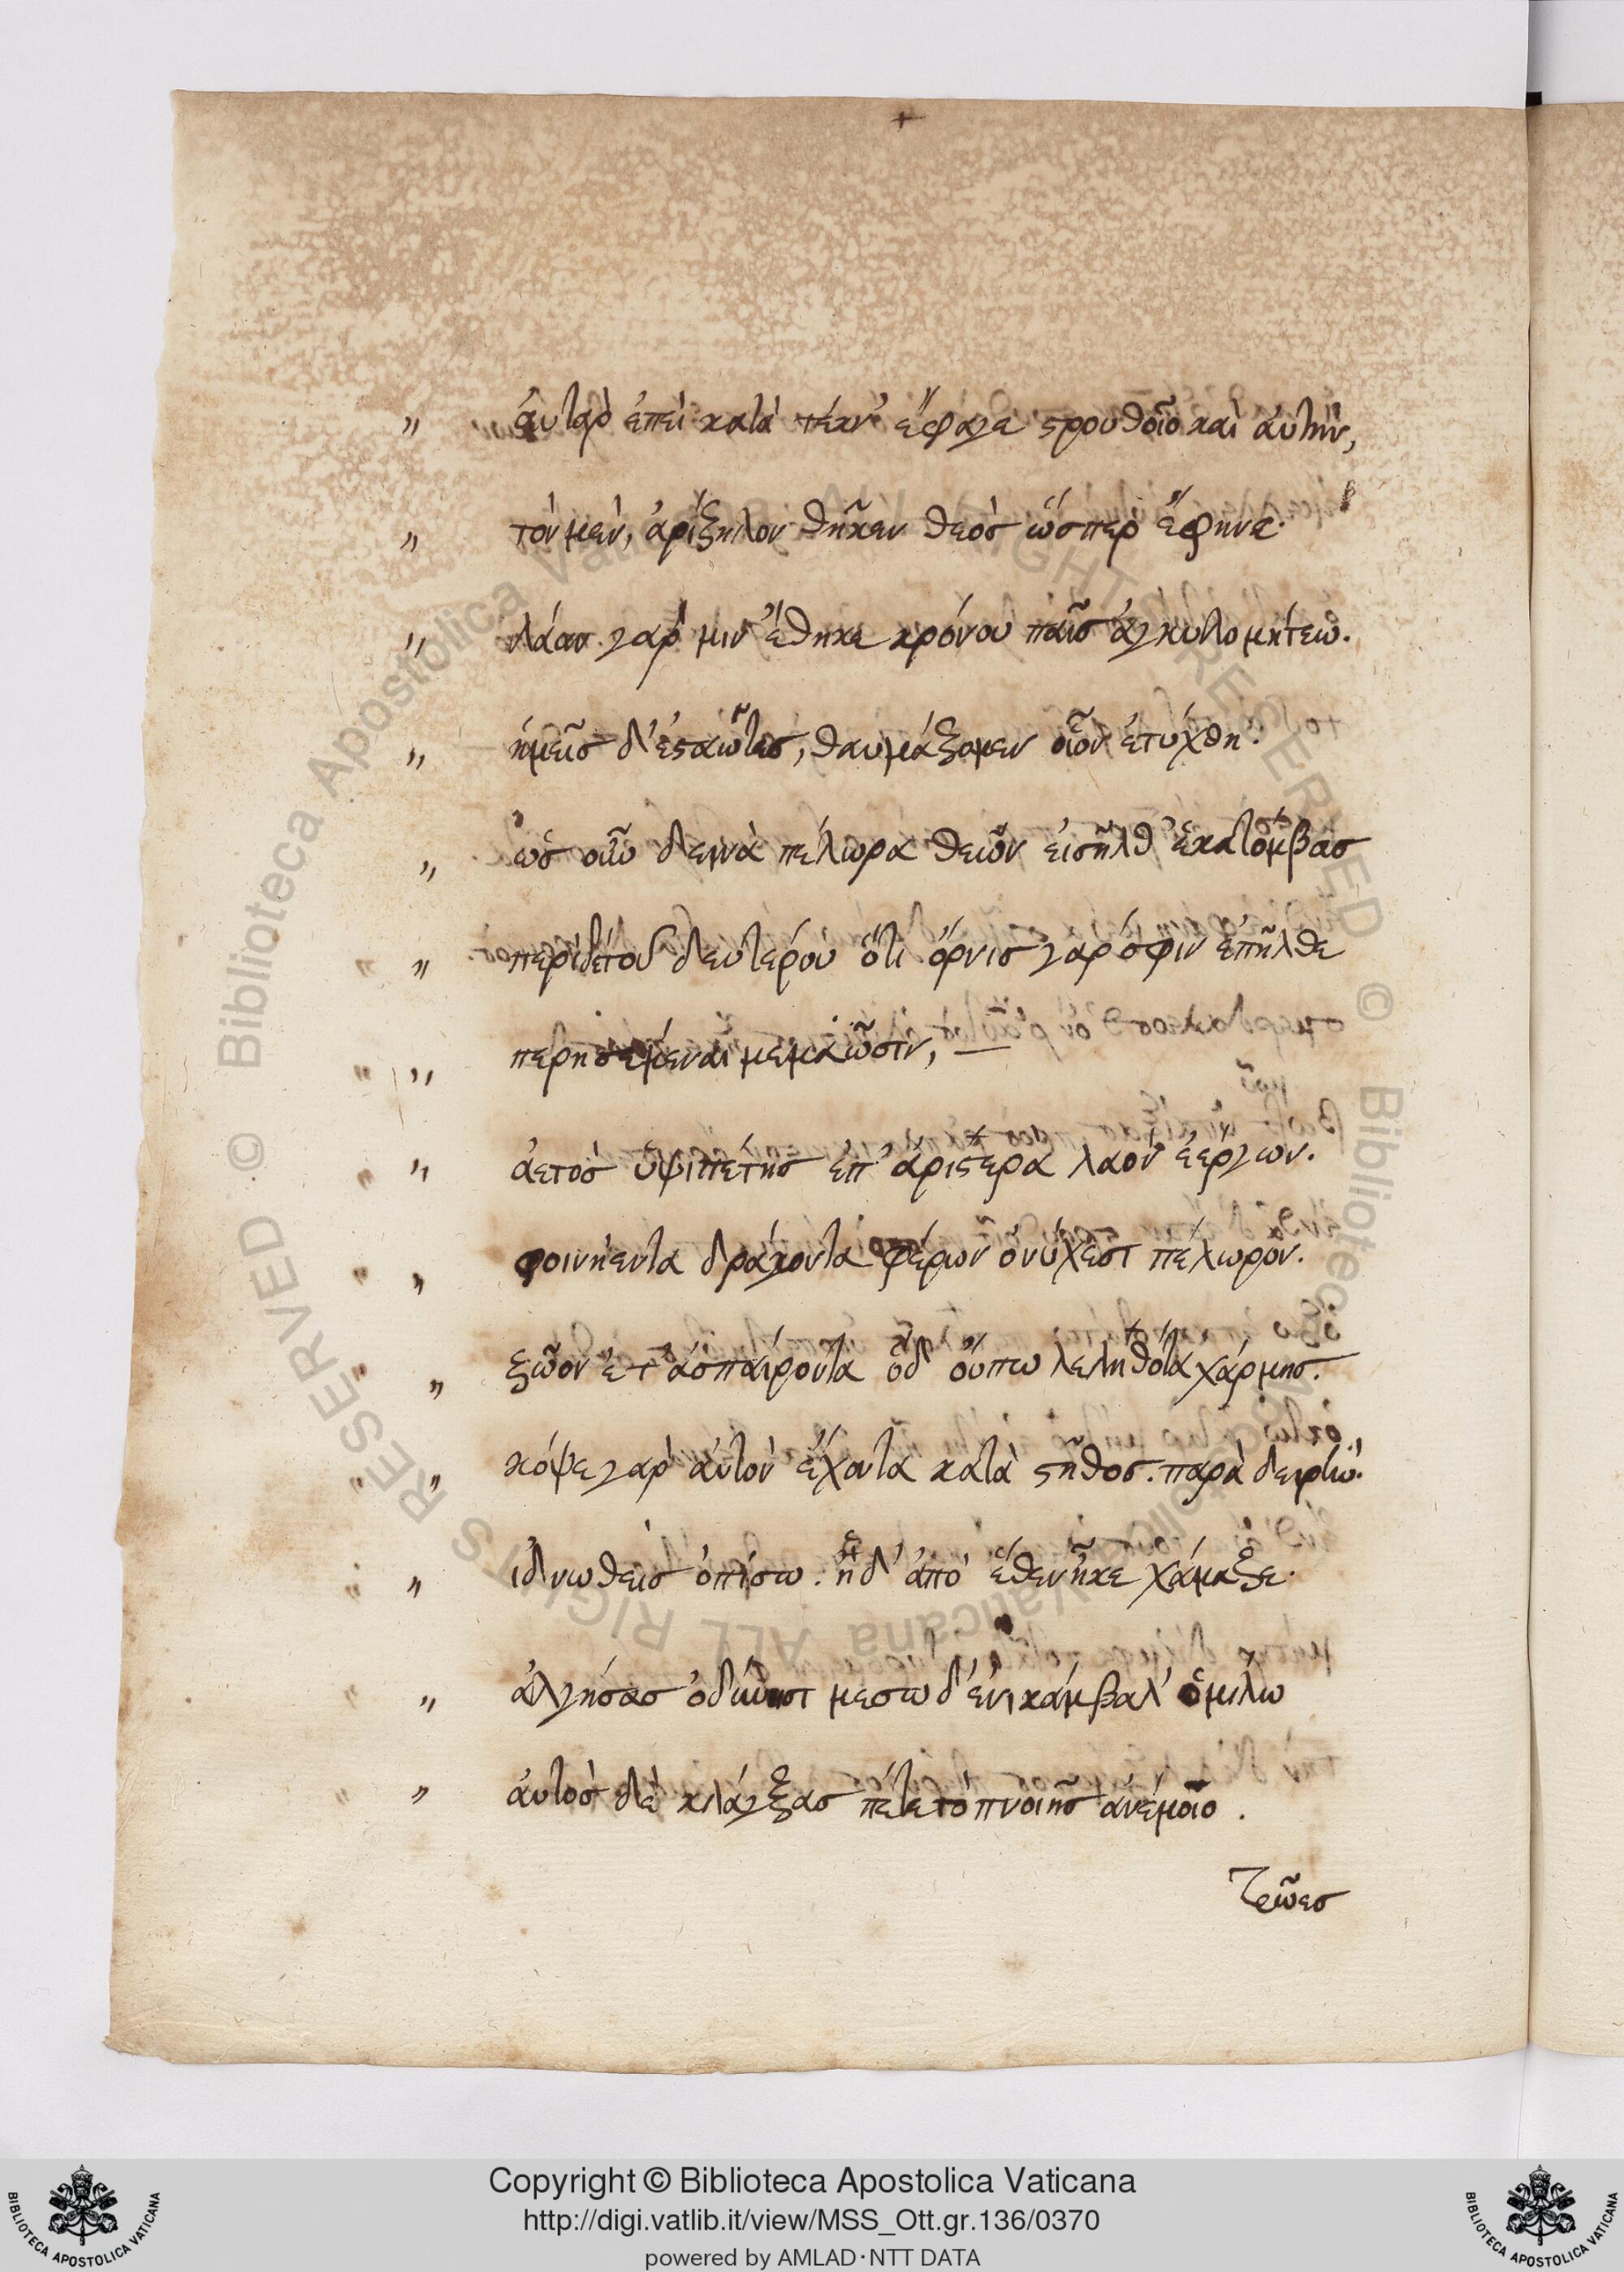 αὐτὰρ ἐπεὶ κατὰ τέκν' ἔφαγε στρουθοῖο καὶ αὐτὴν,
τὸν μὲν, ἀρίζηλον θῆκεν θεὸσ ὥσπερ ἔφηνε·
λάαν γαρ μιν ἔθηκε κρόνου παῖσ ἀγκυλομήτεω.
ἡμεῖσ δ' ἑσταῶτεσ, θαυμάζομεν οἷον ἐτύχθη.
ὡσ οὖν δεινὰ πέλωρα θεῶν εἰσῆλθ' ἑκατόμβασ
περὶ δὲ τοῦ δευτέρου ὅτι ὄρνισ γαρ σφιν ἐπῆλθε
περησέμεναι μεμαῶσιν, —
ἀετὸσ ὑψιπέτησ ἐπ' ἀριστερὰ λαὸν ἐέργων.
φοινήεντα δράκοντα φέρων ὀνύχεσι πέλωρον.
ζῶον ἔτ' ἀσπαίροντα οὐδ' οὔπω λεληθότα χάρμησ.
κόψε γαρ αὐτὸν ἔχοντα κατὰ στῆθοσ. παρὰ δειρὴν·
ἰδνωθεὶσ ὀπίσω. ἡ δ' ἀπὸ ἕθεν ἧκε χάμαζε·
ἀλγήσασ ὀδύνησι μεσω δ' ἐνὶ κάμβαλ' ὁμίλω
ἀυτὸσ δὲ κλάγξασ πέτετο πνοιῆσ ἀνέμοιο.
Τρῶεσ
Copyright © Biblioteca Apostolica Vaticana
http://digi.vatlib.it/view/MSS_Ott.gr.136/0370
powered by AMLAD·NTT DATA